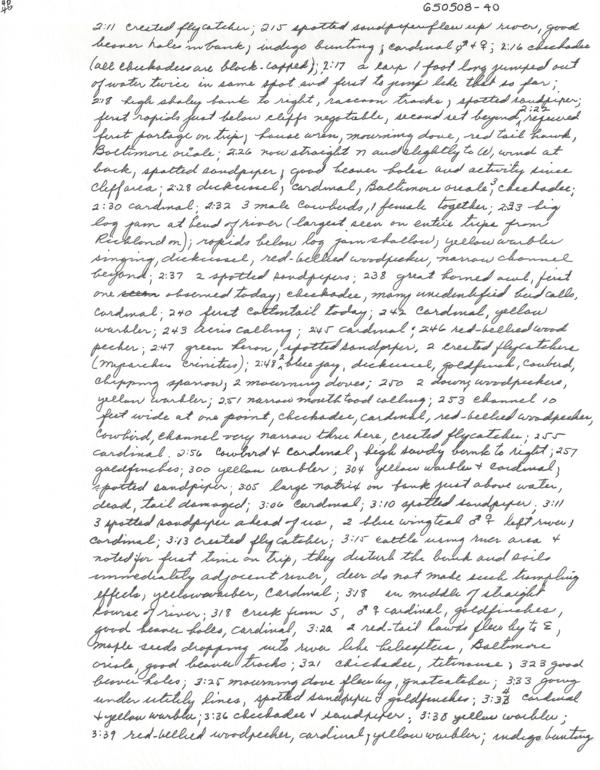 650508-40
2:11 crested flycatcher; 215 spotted sandpiper flew up river, good
beaver holes in bank; indigo bunting; cardinal ♂ + ♀; 2:16 chickadee
(all chickadees are black-capped); 2:17 a carp 1 foot long jumped out
of water twice in same spot and first to jump like that so far;
218 high shaley bank to right, raccoon tracks, spotted sandpiper;
first rapids just below cliffs negotiable, second set beyond, 2:22 required
first portage on trip; house wren, mourning dove, red tail hawk,
Baltimore oriole; 226 now straight N and slightly to W, wind at
back, spotted sandpiper; good beaver holes and activity since
cliff area; 2:28 dickcissel, cardinal, Baltimore oriole, chickadee;
2:30 cardinal; 2:32 3 male cowbirds, 1 female together; 2:33 big
log jam at bend of river (largest seen on entire trips from
Richland on); rapids below log jam shallow; yellow warbler
singing, dickcissel, red-bellied woodpecker, narrow channel
beyond; 2:37 2 spotted sandpipers; 238 great horned owl, first
one seen observed today; chickadee, many unidentified bird calls,
cardinal; 240 first cottontail today; 242 cardinal, yellow
warbler; 243 Acris calling; 245 cardinal; 246 red-bellied wood
pecker; 247 green heron, spotted sandpiper, 2 crested flycatchers
(Myiarchus crinitus); 2:48 2 blue jay, dickcissel, goldfinch, cowbird,
chipping sparrow, 2 mourning doves; 250 2 downy woodpeckers,
yellow warbler; 251 narrow mouth toad calling; 253 channel 10
feet wide at one point, chickadee, cardinal, red-bellied woodpecker,
cowbird, channel very narrow thru here, crested flycatcher; 255
cardinal; 2:56 cowbird & cardinal; high sandy bank to right; 257
goldfinches; 300 yellow warbler; 304 yellow warbler & cardinal,
spotted sandpiper; 305 large natrix on bank just above water,
dead, tail damaged; 3:06 cardinal; 3:10 spotted sandpiper; 3:11
3 spotted sandpiper ahead of us, 2 blue wing teal ♂ ♀ left river;
cardinal; 3:13 crested flycatcher; 3:15 cattle using river area &
noted for first time on trip, they disturb the bank and soils
immediately adjacent river, deer do not make such trampling
effects, yellow warbler, cardinal; 318 in middle of straight
course of river; 318 creek from S, ♂ ♀ cardinal, goldfinches,
good beaver holes, cardinal, 3:20 2 red-tail hawks flew by to E,
maple seeds dropping into river like helicopters, Baltimore
oriole, good beaver tracks; 321 chickadee, titmouse; 323 good
beaver holes; 3:25 mourning dove flew by, gnatcatcher; 3:33 going
under utility lines, spotted sandpiper & goldfinches; 3:34 cardinal
& yellow warbler; 3:36 chickadee & sandpiper; 3:38 yellow warbler;
3:39 red-bellied woodpecker, cardinal, yellow warbler; indigo bunting